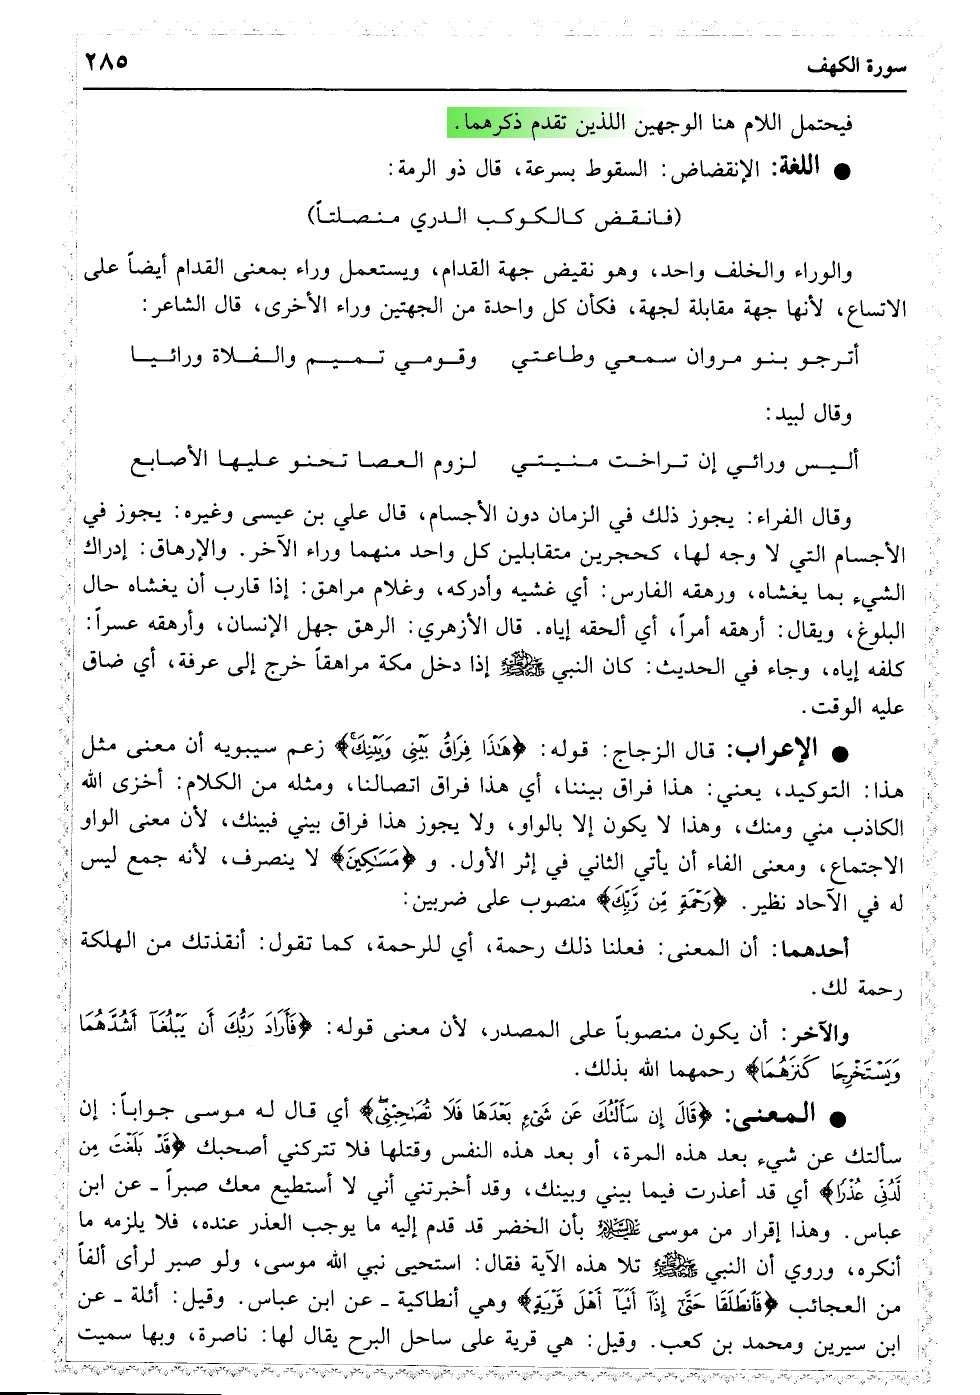 سورة الكهف ٢٨٥
فيحتمل اللام هنا الوجهين اللذين تقدم ذكرهما.
● اللغة: الإنقضاض: السقوط بسرعة، قال ذو الرمة:
(فـانـقـض كـالـكـوكـب الـدري مـنـصـلـتـاً)
والوراء والخلف واحد، وهو نقيض جهة القدام، ويستعمل وراء بمعنى القدام أيضاً على
الاتساع، لأنها جهة مقابلة لجهة، فكأن كل واحدة من الجهتين وراء الأخرى، قال الشاعر:
أتـرجـو بـنـو مـروان سـمـعـي وطـاعـتـي وقـومـي تـمـيـم والـفـلاة ورائـيـا
وقال لبيد:
ألـيـس ورائـي إن تـراخـت مـنـيـتـي لـزوم الـعـصـا تـحـنـو عـلـيـهـا الأصـابـع
وقال الفراء: يجوز ذلك في الزمان دون الأجسام، قال علي بن عيسى وغيره: يجوز في
الأجسام التي لا وجه لها، كحجرين متقابلين كل واحد منهما وراء الآخر. والإرهاق: إدراك
الشيء بما يغشاه، ورهقه الفارس: أي غشيه وأدركه، وغلام مراهق: إذا قارب أن يغشاه حال
البلوغ، ويقال: أرهقه أمراً، أي ألحقه إياه. قال الأزهري: الرهق جهل الإنسان، وأرهقه عسراً:
كلفه إياه، وجاء في الحديث: كان النبي ﷺ إذا دخل مكة مراهقاً خرج إلى عرفة، أي ضاق
عليه الوقت.
● الإعراب: قال الزجاج: قوله: ﴿هَٰذَا فِرَاقُ بَيْنِي وَبَيْنِكَ﴾ زعم سيبويه أن معنى مثل
هذا: التوكيد، يعني: هذا فراق بيننا، أي هذا فراق اتصالنا، ومثله من الكلام: أخزى الله
الكاذب مني ومنك، وهذا لا يكون إلا بالواو، ولا يجوز هذا فراق بيني فبينك، لأن معنى الواو
الاجتماع، ومعنى الفاء أن يأتي الثاني في إثر الأول. و ﴿مَسَٰكِينَ﴾ لا ينصرف، لأنه جمع ليس
له في الآحاد نظير. ﴿رَحْمَةً مِّن رَّبِّكَ﴾ منصوب على ضربين:
أحدهما: أن المعنى: فعلنا ذلك رحمة، أي للرحمة، كما تقول: أنقذتك من الهلكة
رحمة لك.
والآخر: أن يكون منصوباً على المصدر، لأن معنى قوله: ﴿فَأَرَادَ رَبُّكَ أَن يَبْلُغَآ أَشُدَّهُمَا
وَيَسْتَخْرِجَا كَنزَهُمَا﴾ رحمهما الله بذلك.
● المعنى: ﴿قَالَ إِن سَأَلْتُكَ عَن شَيْءٍ بَعْدَهَا فَلَا تُصَٰحِبْنِي﴾ أي قال له موسى جواباً: إن
سألتك عن شيء بعد هذه المرة، أو بعد هذه النفس وقتلها فلا تتركني أصحبك ﴿قَدْ بَلَغْتَ مِن
لَّدُنِّي عُذْرًا﴾ أي قد أعذرت فيما بيني وبينك، وقد أخبرتني أني لا أستطيع معك صبراً ـ عن ابن
عباس. وهذا إقرار من موسى عليه السلام بأن الخضر قد قدم إليه ما يوجب العذر عنده، فلا يلزمه ما
أنكره، وروي أن النبي ﷺ تلا هذه الآية فقال: استحيى نبي الله موسى، ولو صبر لرأى ألفاً
من العجائب ﴿فَٱنطَلَقَا حَتَّىٰٓ إِذَآ أَتَيَآ أَهْلَ قَرْيَةٍ﴾ وهي أنطاكية ـ عن ابن عباس. وقيل: أئلة ـ عن
ابن سيرين ومحمد بن كعب. وقيل: هي قرية على ساحل البرح يقال لها: ناصرة، وبها سميت